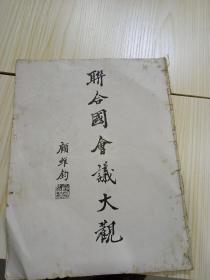 聯合國會議大觀
顧維鈞